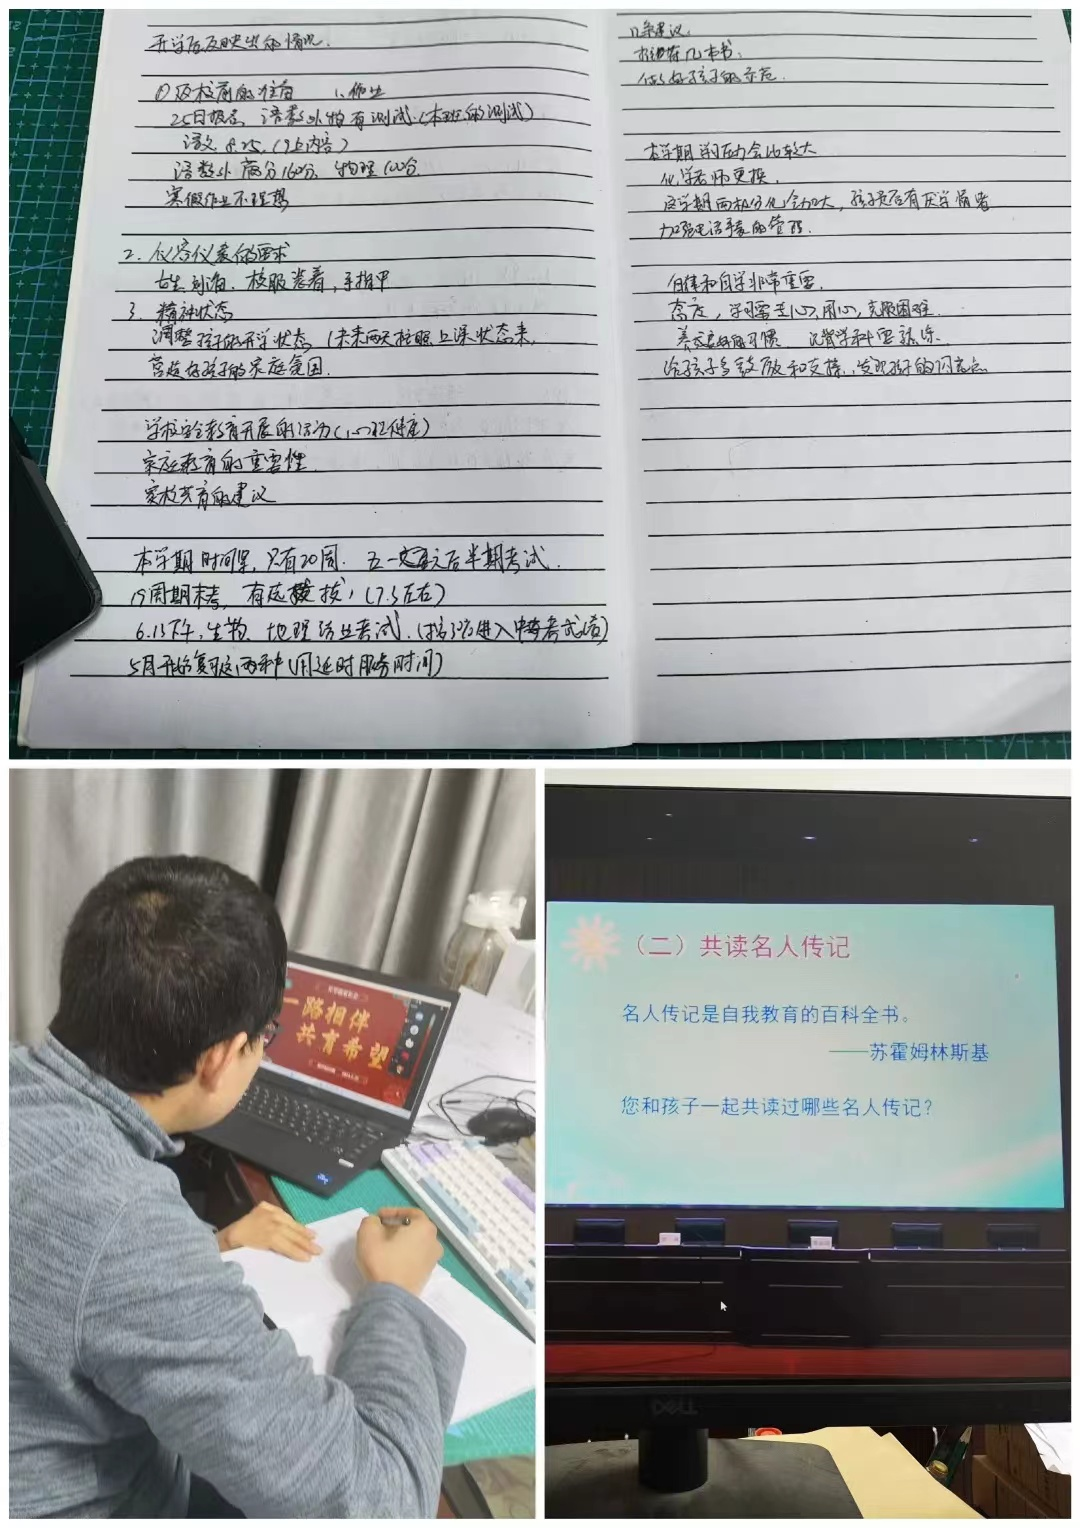 开学后反映出的情况.
①返校前的准备 1、作业
25日报名, 语数外物有测试.(本班的测试)
语文 8:25.(9上内容)
语数外 满分160分, 物理100分.
寒假作业不理想
2. 仪容仪表的要求
女生刘海, 校服装着, 手指甲
3. 精神状态
调整孩子的开学状态 (未来两天按照上课状态来,
营造好孩子的家庭氛围.
学校安全教育开展的活动(心理健康)
家庭教育的重要性.
家校共育的建议
本学期时间紧, 只有20周. 五一 后半期考试.
19周期末考, 有选拔, (7.3左右)
6.13下午, 生物、地理结业考试.
5月开始复习这两科(用延时服务时间)
几条建议.
有几本书.
做好孩子的示范.
本学期学习压力会比较大
化学老师更换.
这学期两极分化会加大, 孩子是否有厌学情绪
加强电话手表的管理.
自律和自学非常重要.
态度, 学习需要专心, 用心, 克服困难.
养成良好的习惯.
给孩子多鼓励和支持, 发现孩子的闪光点.
一路相伴
共育希望
(二)共读名人传记
名人传记是自我教育的百科全书。
——苏霍姆林斯基
您和孩子一起共读过哪些名人传记?
DELL